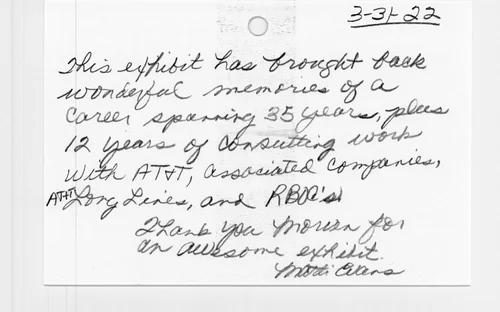 3-31-22
This exhibit has brought back
wonderful memories of a
career spanning 35 years, plus
12 years of consulting work
with AT+T, associated companies,
AT+T Long Lines, and RBOC's.
Thank you for
an awesome exhibit.
Evans